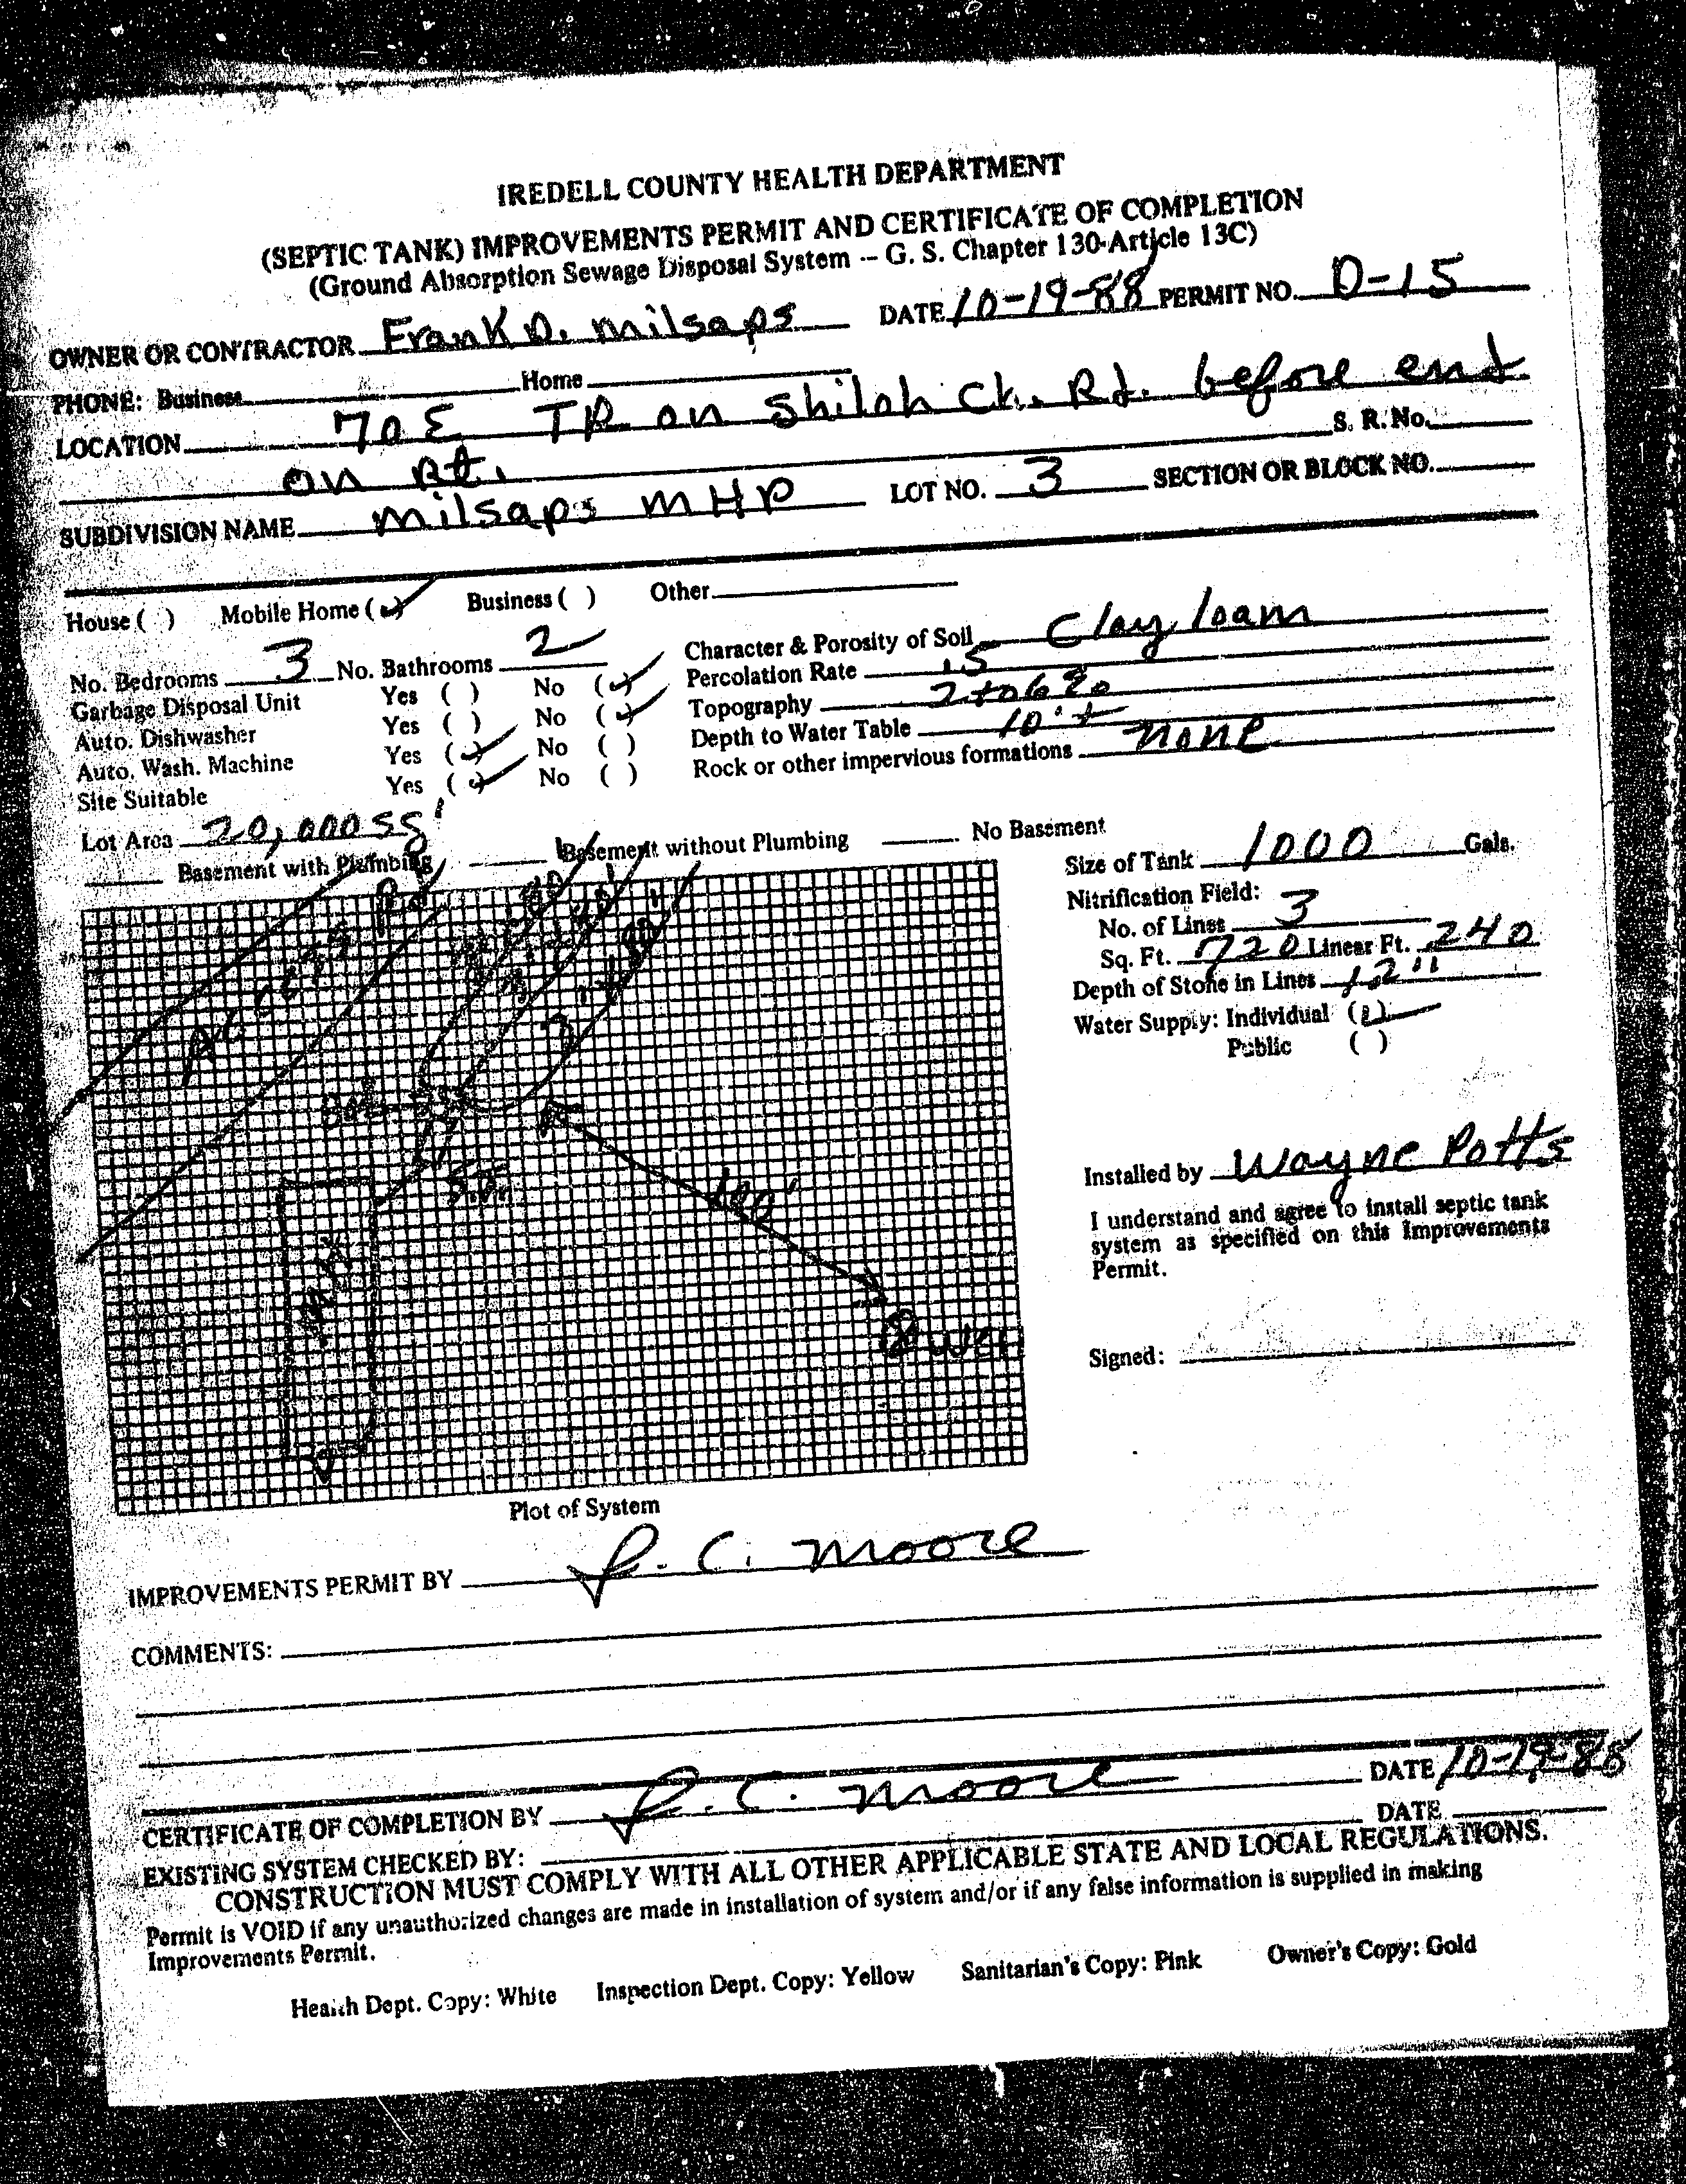 IREDELL COUNTY HEALTH DEPARTMENT
(SEPTIC TANK) IMPROVEMENTS PERMIT AND CERTIFICATE OF COMPLETION
(Ground Absorption Sewage Disposal System -- G. S. Chapter 130-Article 13C)
OWNER OR CONTRACTOR Frank D. Milsaps DATE 10-19-88 PERMIT NO. D-15
PHONE: Business Home
LOCATION 70 E TR on Shiloh Ch. Rd. before end
on Rt. S. R. No.
SUBDIVISION NAME Milsaps MHP LOT NO. 3 SECTION OR BLOCK NO.
House ( ) Mobile Home (✓) Business ( ) Other
No. Bedrooms 3 No. Bathrooms 2 Character & Porosity of Soil Clay loam
Garbage Disposal Unit Yes ( ) No (✓) Percolation Rate .15
Auto. Dishwasher Yes ( ) No (✓) Topography 2 to 6%
Auto. Wash. Machine Yes (✓) No ( ) Depth to Water Table 10'+
Site Suitable Yes (✓) No ( ) Rock or other impervious formations none
Lot Area 20,000 sg'
Basement with Plumbing Basement without Plumbing No Basement
Size of Tank 1000 Gals.
Nitrification Field:
No. of Lines 3
Sq. Ft. 720 Linear Ft. 240
Depth of Stone in Lines 12"
Water Supply: Individual (✓)
Public ( )
Rd
S.T.
100'
Well
Installed by Wayne Potts
I understand and agree to install septic tank
system as specified on this Improvements
Permit.
Signed:
Plot of System
IMPROVEMENTS PERMIT BY J. C. Moore
COMMENTS:
CERTIFICATE OF COMPLETION BY J. C. Moore DATE 10-19-88
EXISTING SYSTEM CHECKED BY: DATE
CONSTRUCTION MUST COMPLY WITH ALL OTHER APPLICABLE STATE AND LOCAL REGULATIONS.
Permit is VOID if any unauthorized changes are made in installation of system and/or if any false information is supplied in making
Improvements Permit.
Health Dept. Copy: White Inspection Dept. Copy: Yellow Sanitarian's Copy: Pink Owner's Copy: Gold